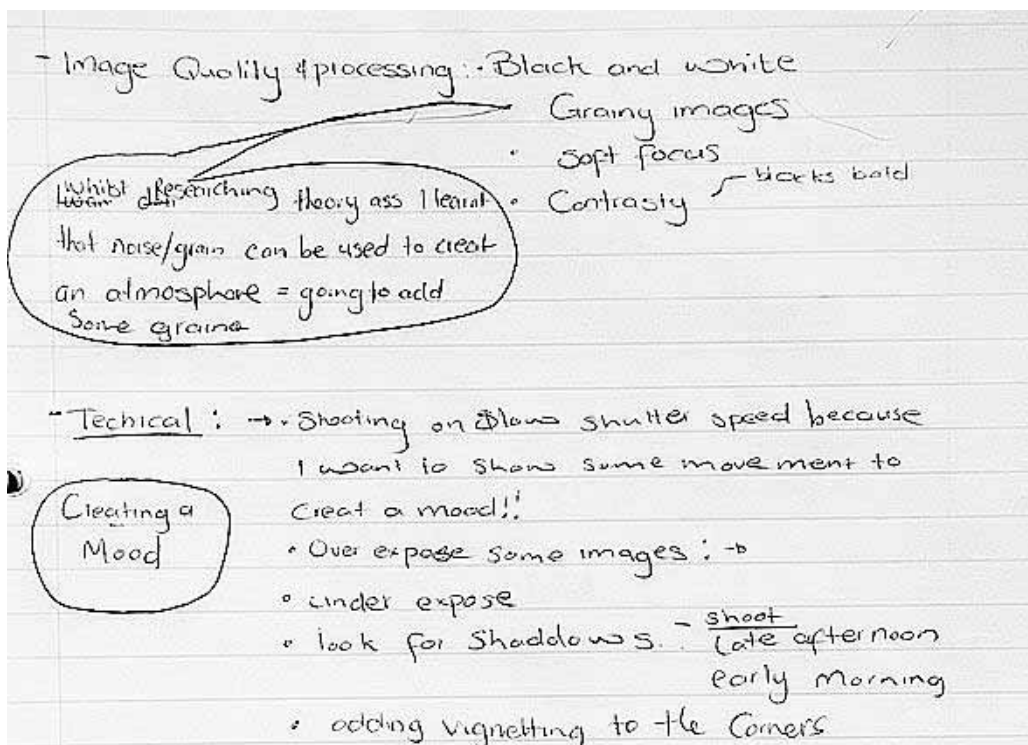 - Image Quality & processing: · Black and white
Grainy images
· Soft focus
· Contrasty
blacks bold
Whilst Researching theory ass I learnt
that noise/grain can be used to creat
an atmosphare = going to add
Some graine
- Techical : → · Shooting on Slow shutter speed because
I want to show some movement to
creat a mood!!
Creating a
Mood
· Over expose some images :
· under expose
· look for Shaddows. - shoot
late afternoon
early Morning
· adding vignetting to the Corners